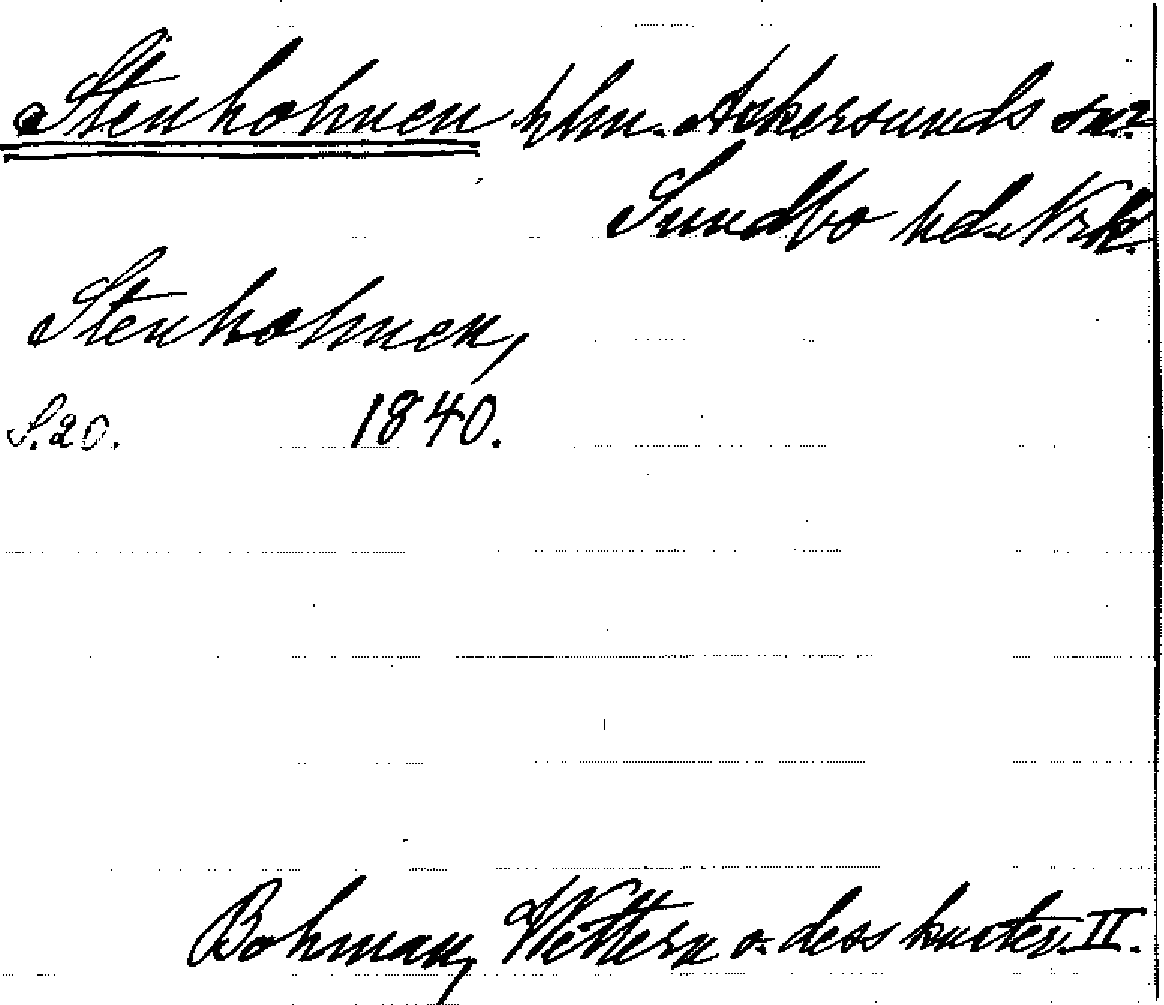 Stenholmen hlm. Askersunds sn.
Sundbo hd. Nrk.
Stenholmen,
S. 20. 1840.
Bohman, Wettern o. dess kuster. II.